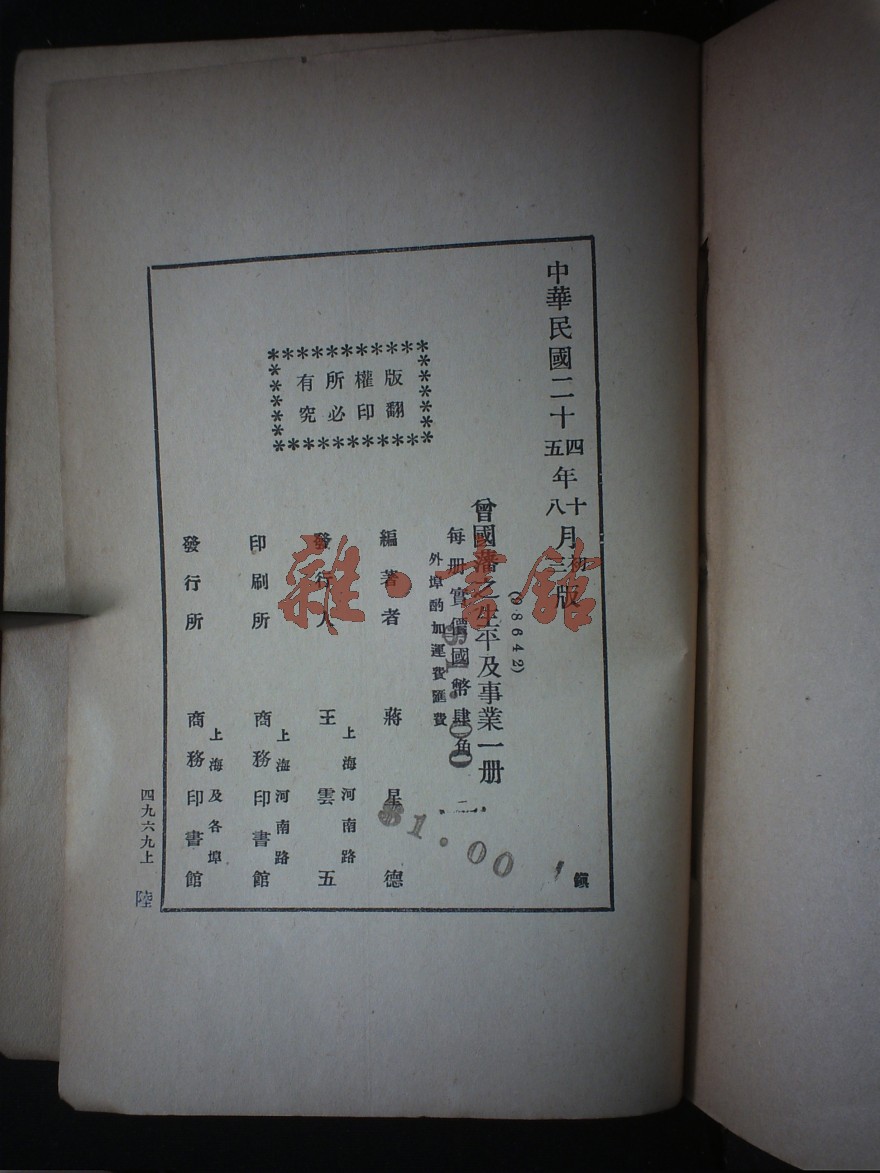 中華民國二十四年十月初版
五 八 三
(98642)
曾國藩之生平及事業一册
每册實價國幣肆角
外埠酌加運費匯費
$1.00
版權所有
翻印必究
編著者 蔣星德
發行人 王雲五
上海河南路
印刷所 商務印書館
上海河南路
發行所 商務印書館
上海及各埠
四九六九上
陸
雜·書館